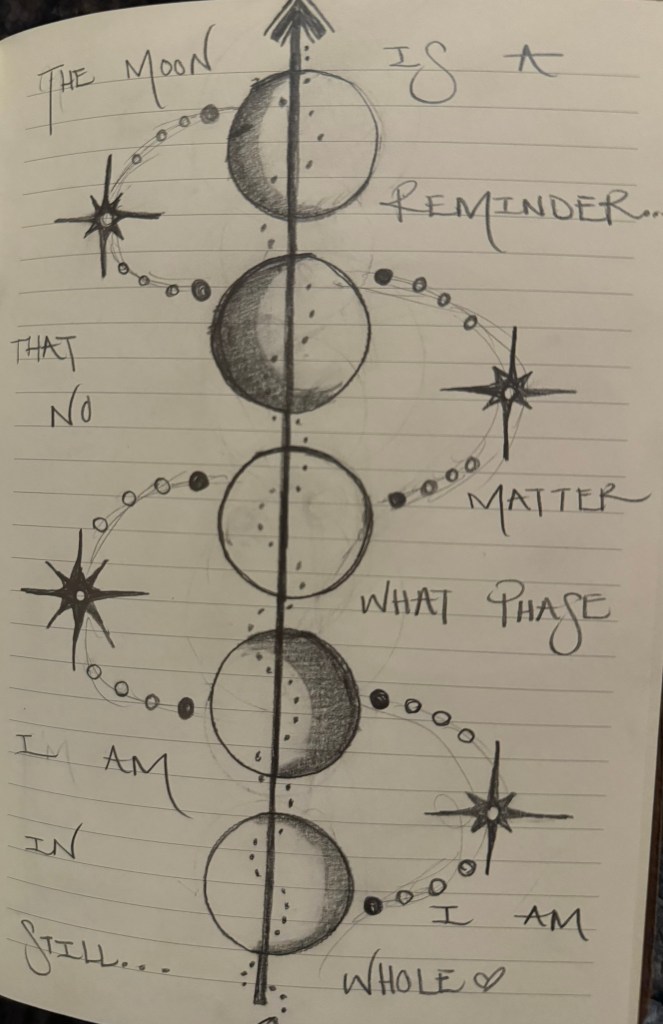 THE MOON IS A
REMINDER...
THAT
NO
MATTER
WHAT PHASE
I AM
IN
I AM
STILL...
WHOLE ♡